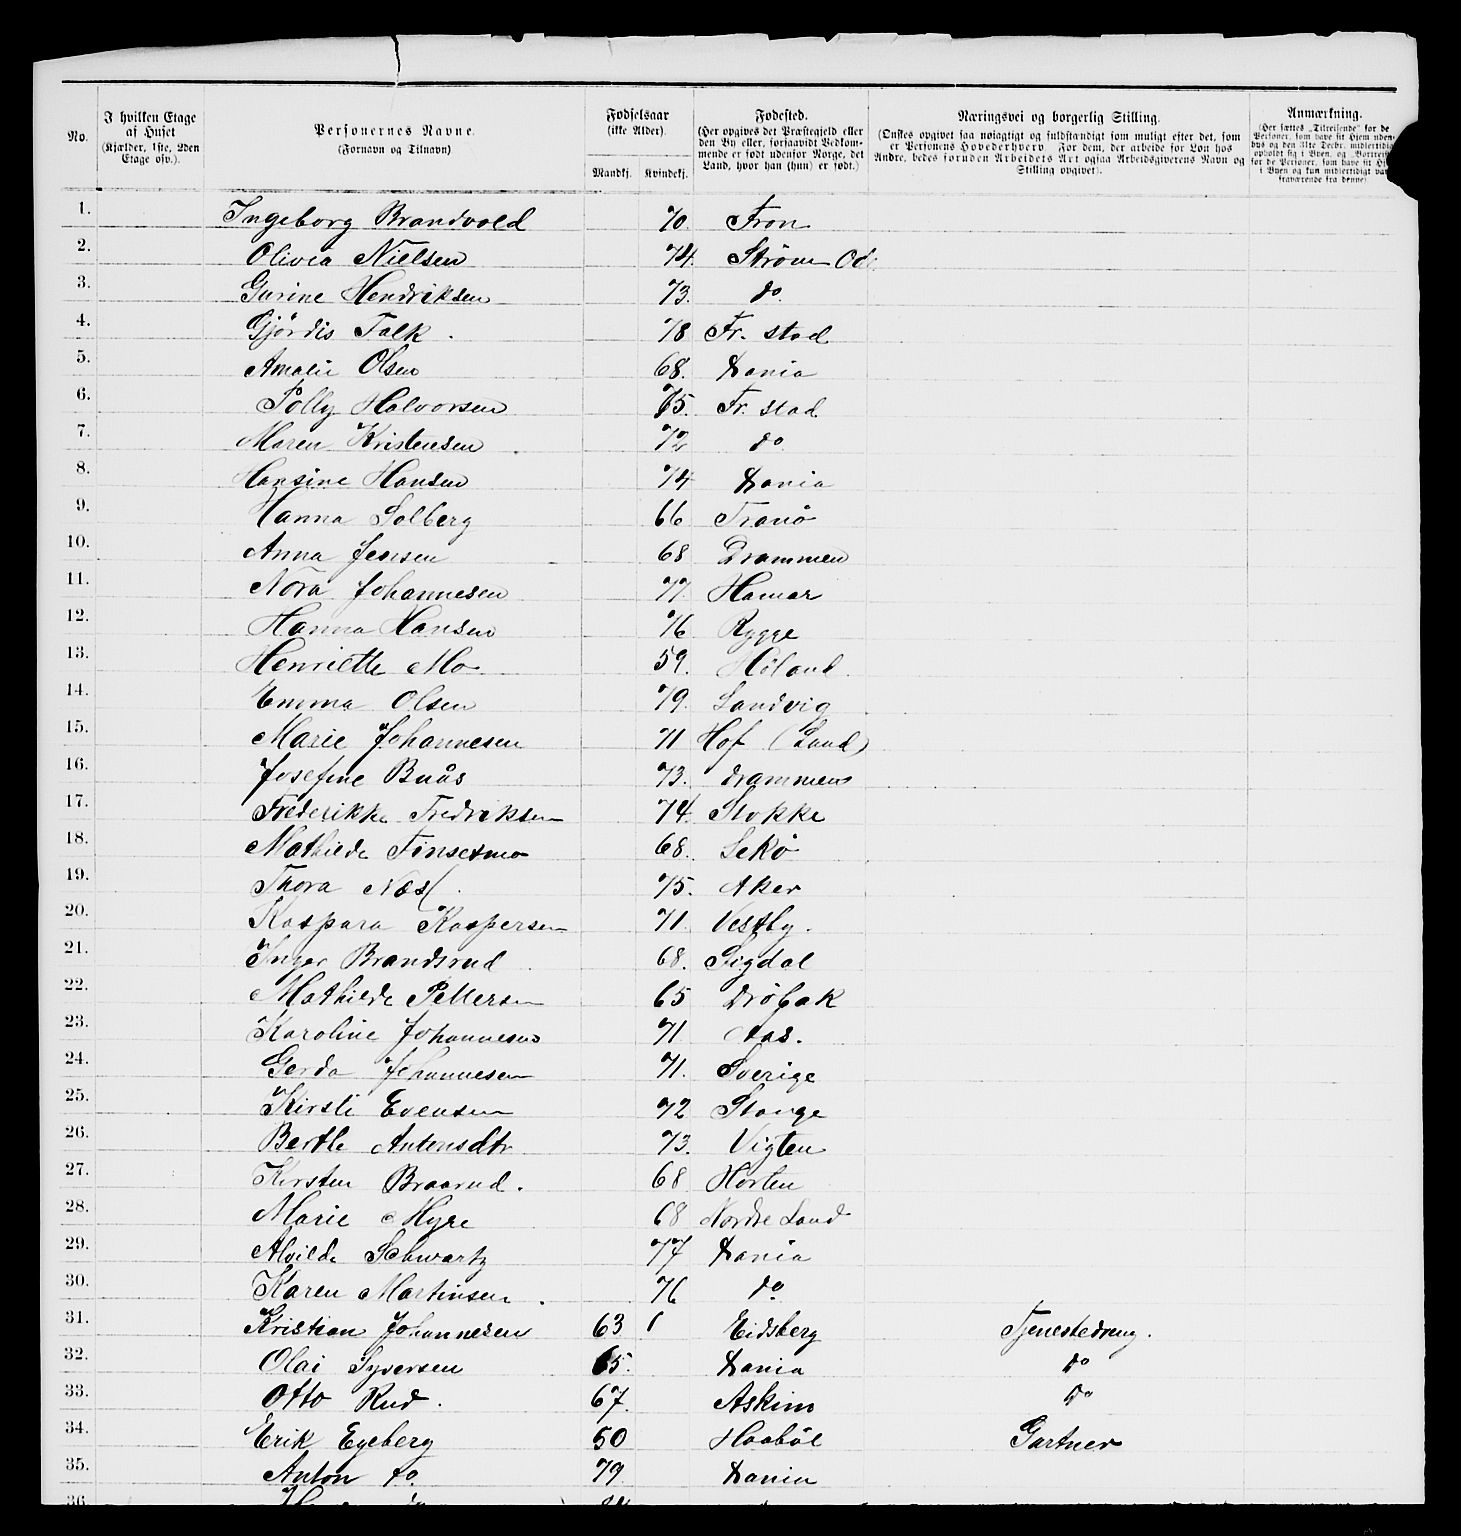 No. | I hvilken Etage af Huset (Kjælder, 1ste, 2den Etage osv.). | Personernes Navne. (Fornavn og Tilnavn) | Fødselsaar (ikke Alder). Mandkj. Kvindekj. | Fødested. (Her opgives det Præstegjeld eller den By eller, forsaavidt Vedkommende er født udenfor Norge, det Land, hvor han (hun) er født.) | Næringsvei og borgerlig Stilling. (Ønskes opgivet saa nøiagtigt og fuldstændigt som muligt efter det, som er Personens Hovederhverv For dem, der arbeide for Løn hos Andre, bedes foruden Arbeidets Art ogsaa Arbeidsgiverens Navn og Stilling opgivet). | Anmærkning.
1. Ingeborg Brandvold 70. Fron
2. Olivia Nielsen 74. Strøm Od.
3. Gurine Hendriksen 73. do.
4. Gjördis Falk. 78 Fr. stad
5. Amalie Olsen 68. Xania
6. Polly Halvorsen 75. Fr. stad
7. Maren Kristensen 72 do
8. Hansine Hansen 74 Xania
9. Hanna Solberg 66 Tranö
10. Anna Jensen 68 Drammen
11. Nora Johannesen 77. Hamar
12. Hanna Hansen 76 Rygge
13. Henriette Mo 59. Höland.
14. Emma Olsen 79. Sandvig
15. Marie Johannesen 71 Hof (Land)
16. Josefine Buås 73. Drammen
17. Frederikke Fredriksen 74. Stokke
18. Mathilde Finsetmo 68. Lekö
19. Thora Næs. 75. Aker
20. Kaspara Kaspersen 71. Vestby.
21. Inger Brandsrud 68. Sigdal
22. Mathilde Pettersen 65 Dröbak
23. Karoline Johannesen 71 Aas.
24. Gerda Johannesen 71. Sverige
25. Kirsti Evensen 72 Stange
26. Berthe Antonsdtr 73. Vigten
27. Kirsten Braarud. 68 Horten
28. Marie Myre 68 Nordre Land
29. Alvilde Schwartz 77 Xania
30. Karen Martinsen. 76 do.
31. Kristian Johannesen 63 Eidsberg Tjenestedreng.
32. Olai Syversen 65. Xania do
33. Otto Rud. 67. Askim do
34. Erik Egeberg 50 Haaböl Gartner
35. Anton do. 79 Xania
36.